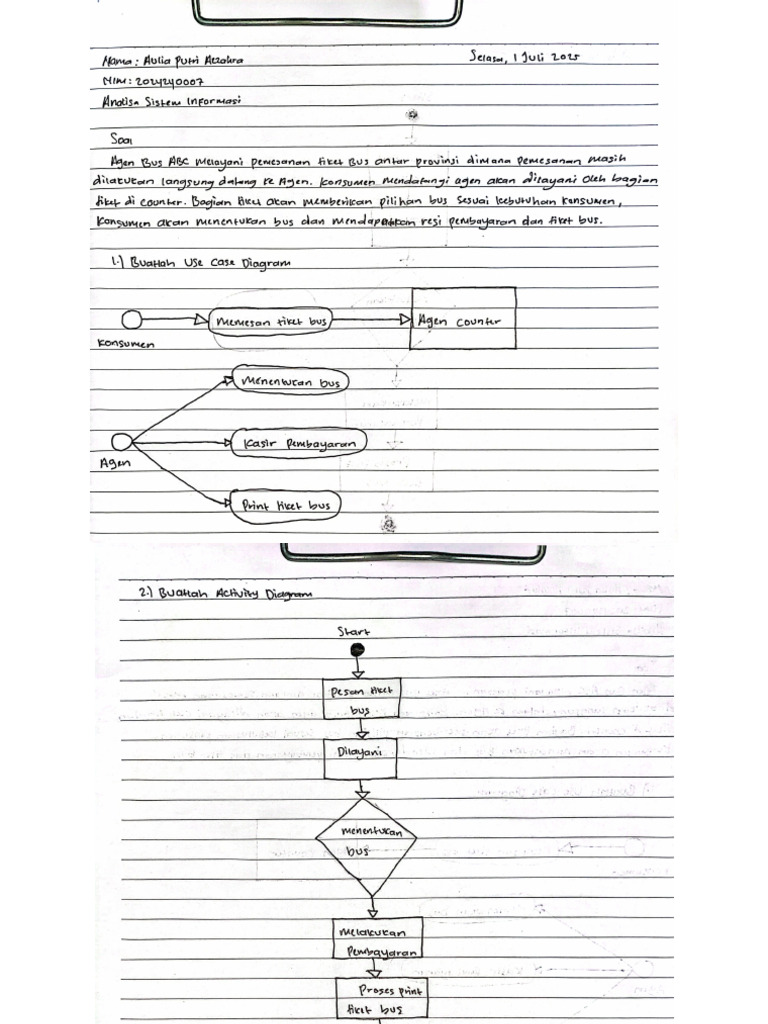 Nama : Aulia Putri Azzahra
Selasa, 1 Juli 2025
NIM : 2024240007
Analisa Sistem Informasi
Soal
Agen Bus ABC melayani pemesanan tiket Bus antar provinsi dimana pemesanan masih
dilakukan langsung datang ke Agen. Konsumen mendatangi agen akan dilayani oleh bagian
tiket di counter. Bagian tiket akan memberikan pilihan bus sesuai kebutuhan konsumen,
konsumen akan menentukan bus dan mendapatkan resi pembayaran dan tiket bus.
1.) Buatlah Use Case Diagram
Konsumen
Memesan tiket bus
Agen counter
Menentukan bus
Agen
Kasir pembayaran
Print tiket bus
2.) Buatlah Activity Diagram
Start
Pesan tiket
bus
Dilayani
Menentukan
bus
Melakukan
Pembayaran
Proses print
tiket bus